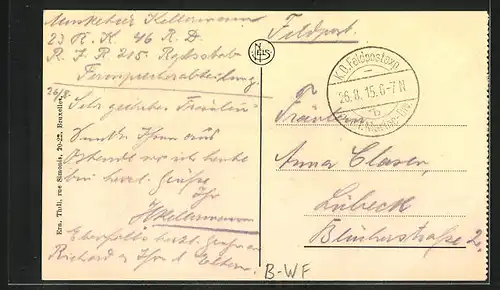 Musketier Kellermann
23 R. K. 46 R. D.
R. I. R 215. Rgtsstab
Fernsprecherabteilung.
26/8.
Sehr geehrtes Fräulein!
Sende Ihnen aus
Ostende wo ich heute
bin herzl. Grüße
Ihr
HKellermann
Ebenfalls herzl. Grüße an
Richard u Ihre l Eltern.
Ern. Thill, rue Simonis, 20-22, Bruxelles.
NELS
Feldpost.
K.D. Feldpostexp.
26.8.15.6-7N
b
Fräulein
Anna Clasen,
Lübeck
Blücherstraße 2.
B-WF